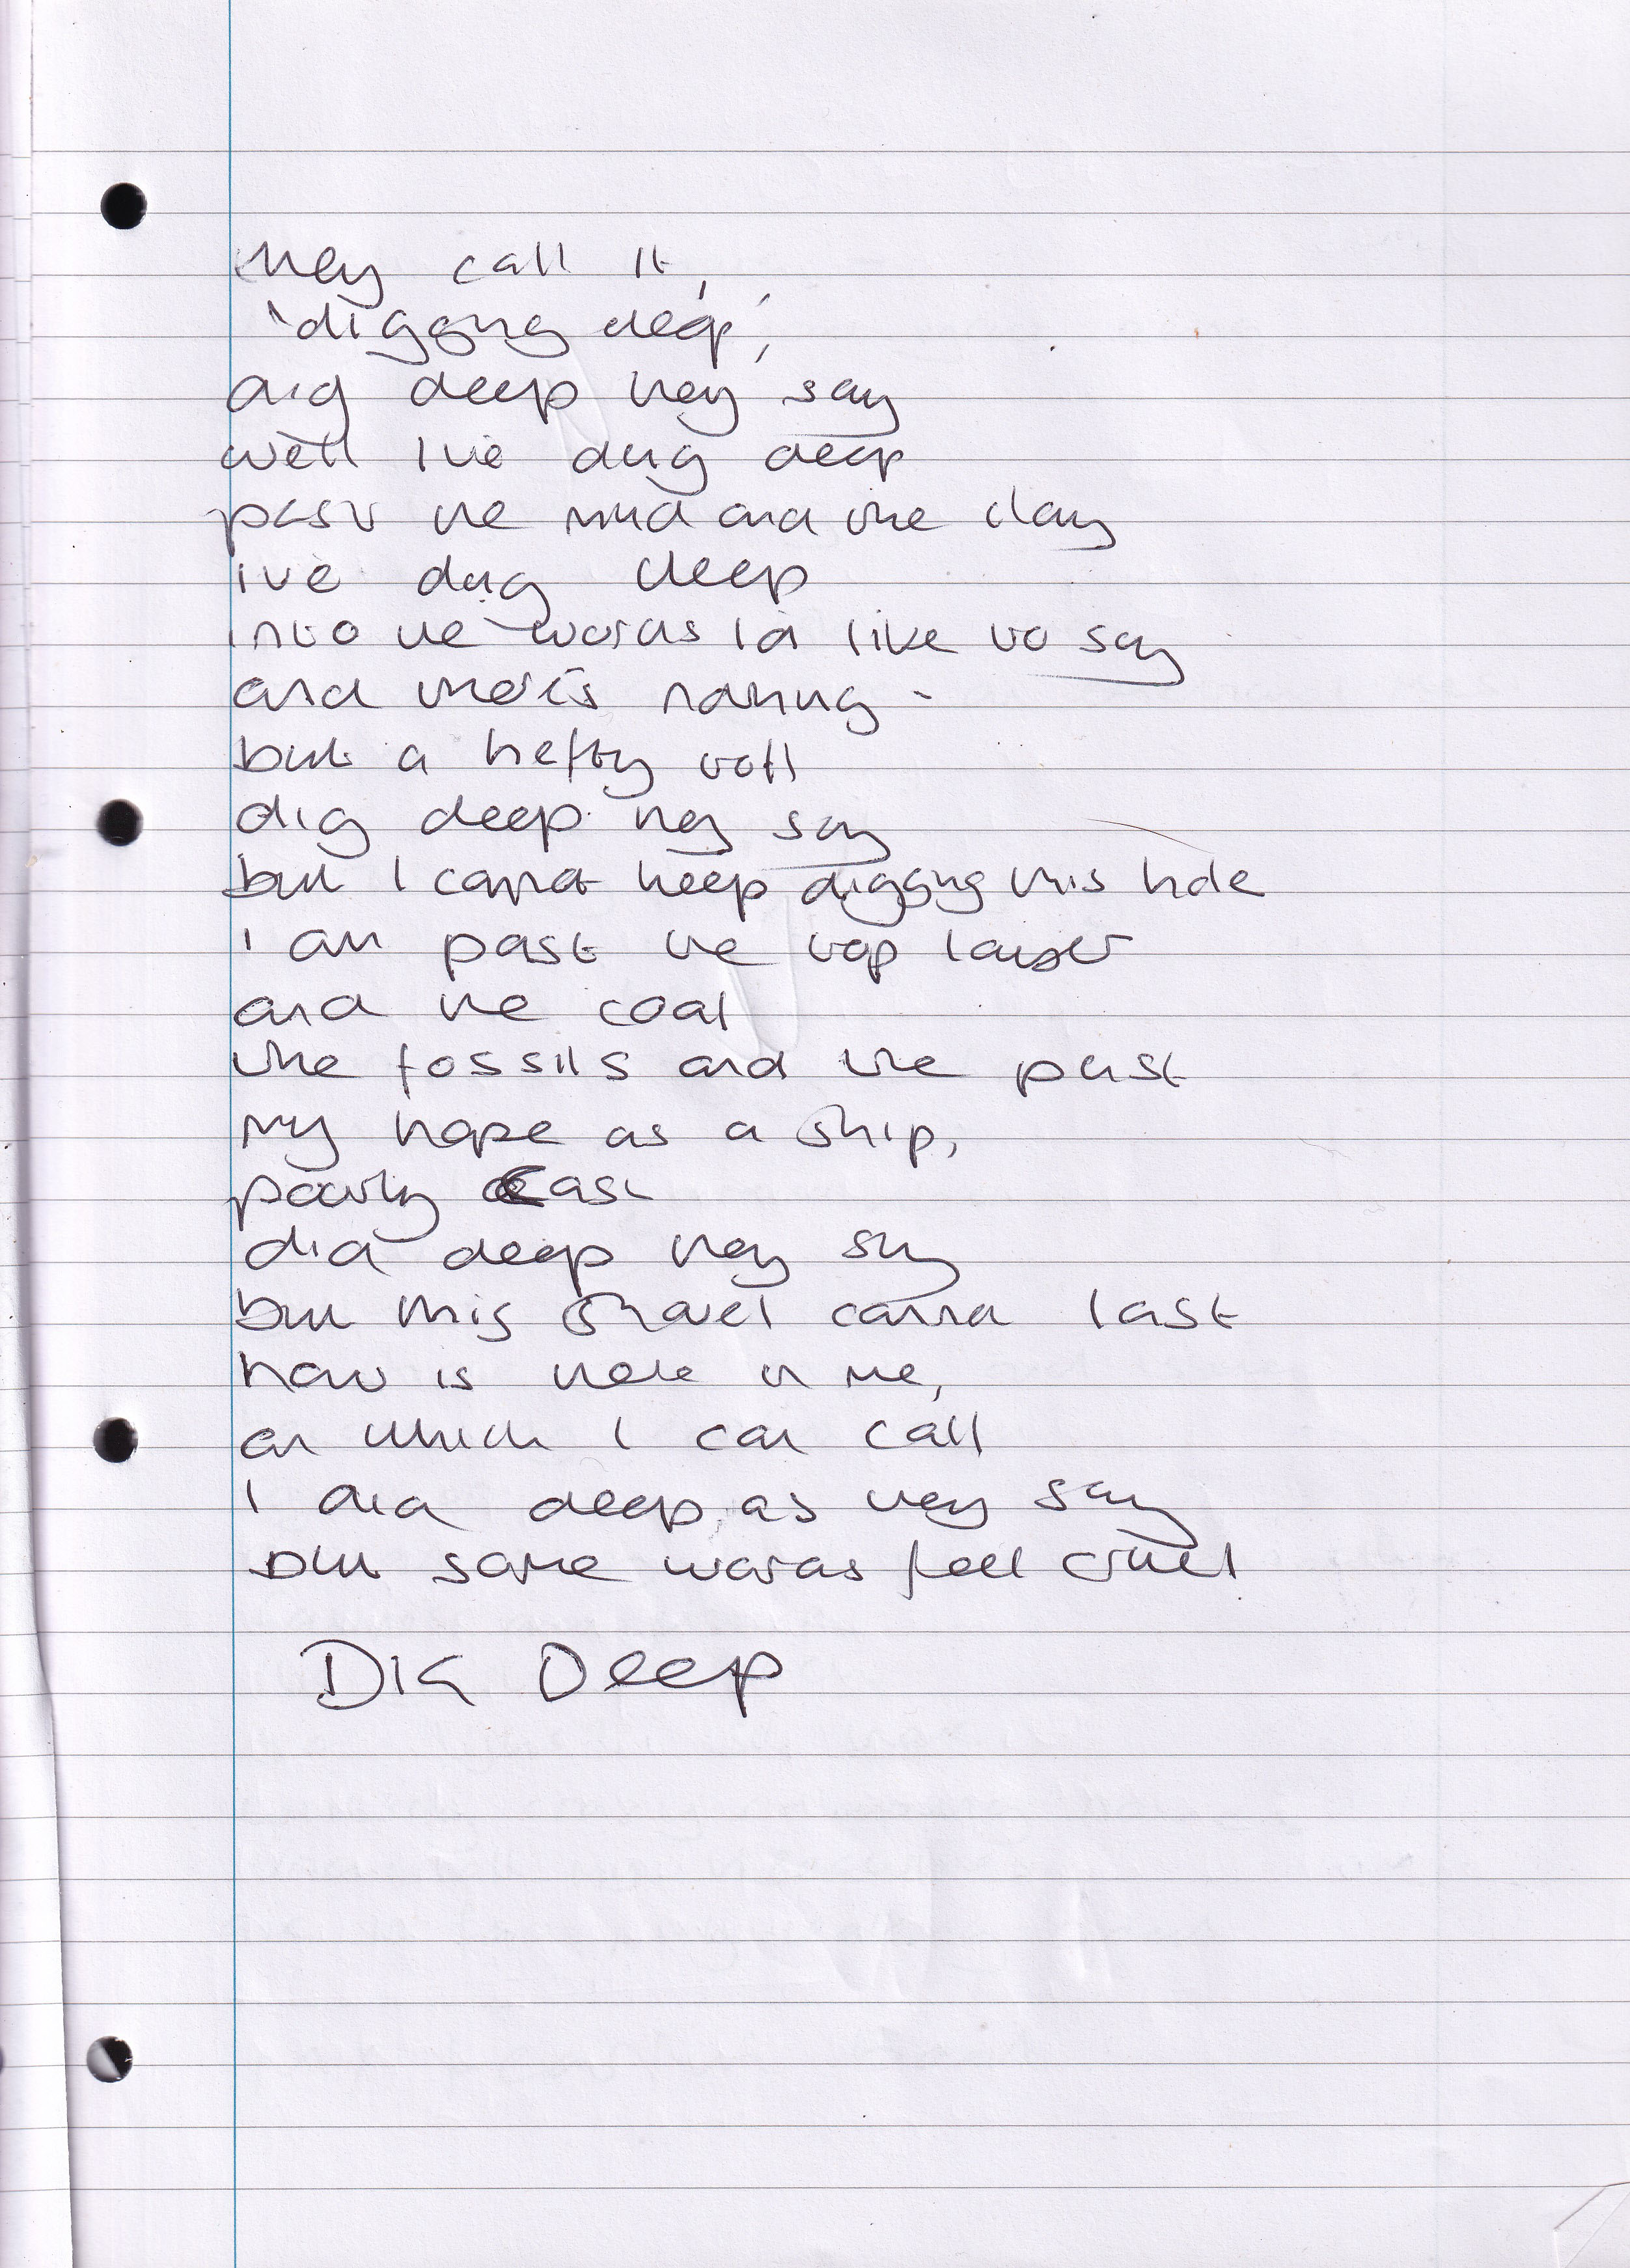 they call it,
'digging deep,'
dig deep they say
well I've dug deep
past the mud and the clay
i've dug deep
into the words I'd like to say
and there's nothing -
but a hefty toll
dig deep they say
but I cannot keep digging this hole
I am past the top layer
and the coal
the fossils and the past
my hope as a ship,
poorly cast
dig deep they say
but this shovel cannot last
how is there in me,
on which I can call
I dig deep, as they say
but some words feel cruel
DIG Deep